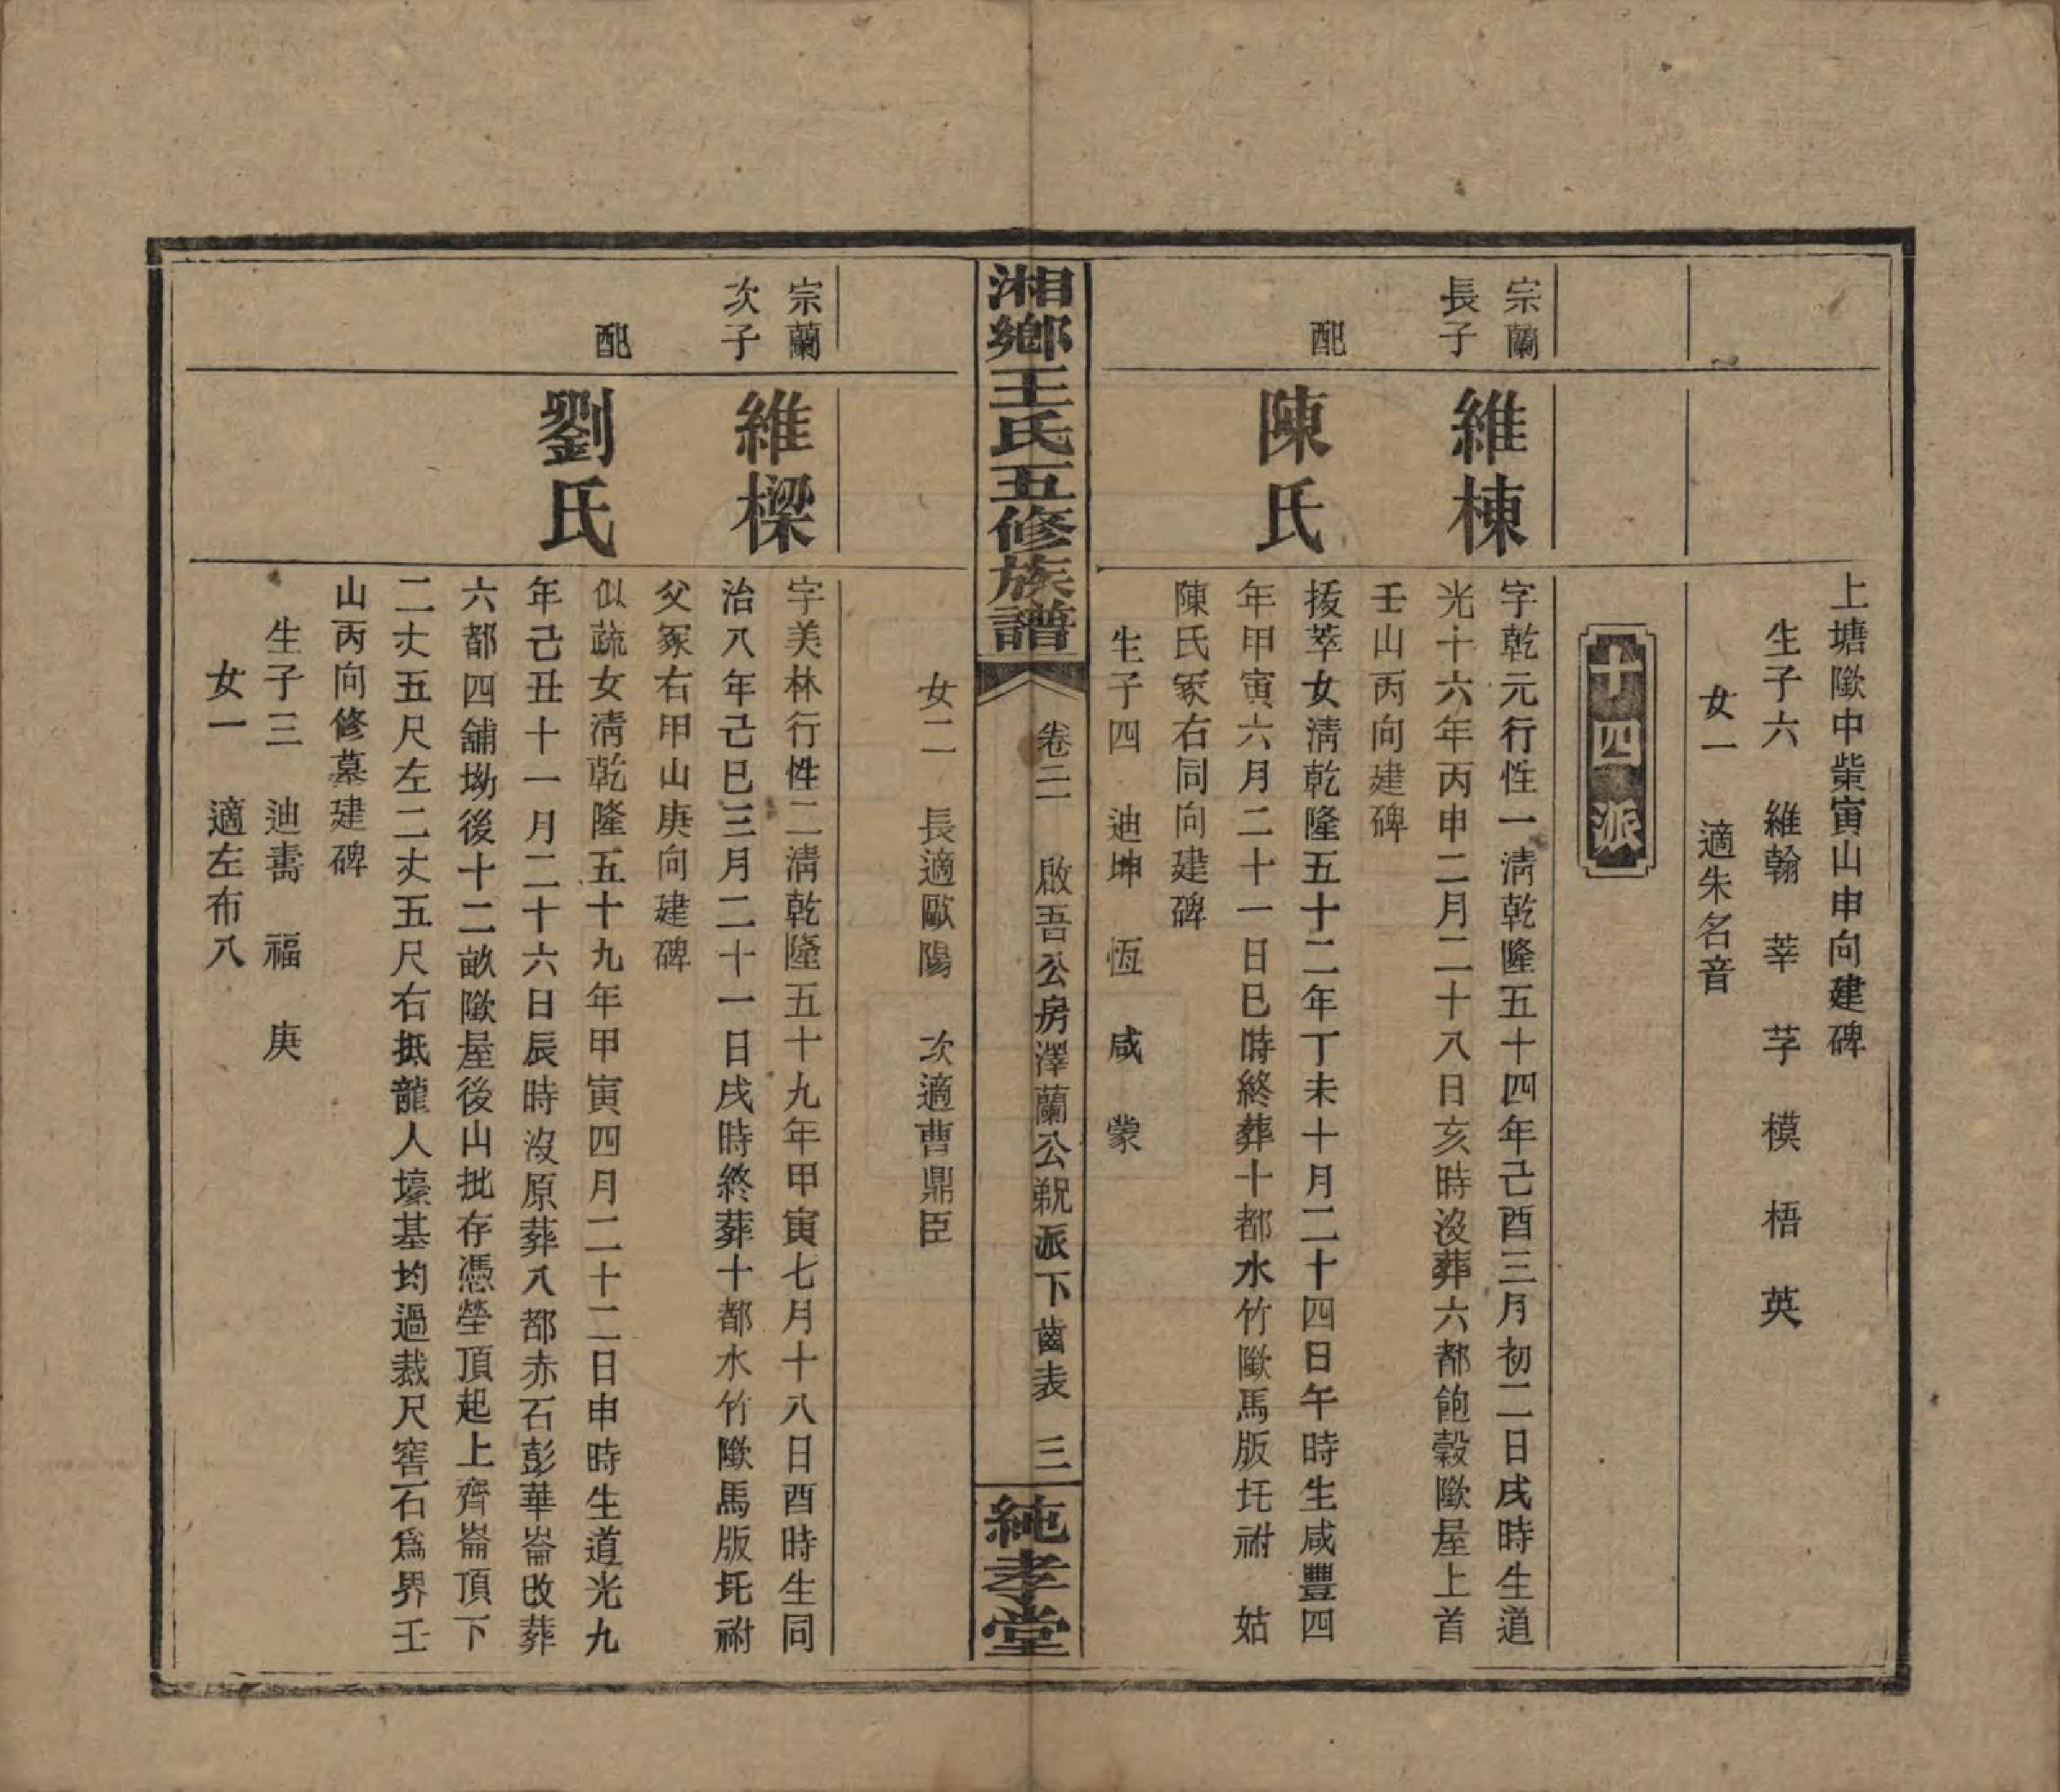 上塘㘓中柴寅山申向建碑
生子六　維翰　莘　芓　模　梧　英
女一　適朱名音
十四派
宗蘭
長子
維棟
字乾元行性一清乾隆五十四年己酉三月初二日戌時生道
光十六年丙申二月二十八日亥時沒葬六都飽穀㘓屋上首
壬山丙向建碑
配
陳氏
拔萃女清乾隆五十二年丁未十月二十四日午時生咸豐四
年甲寅六月二十一日巳時終葬十都水竹㘓馬版圫祔　姑
陳氏冢右同向建碑
生子四　迪坤　恆　咸　蒙
湘鄉王氏五修族譜
卷二　啟吾公房澤蘭公覶派下齒表　三
純孝堂
女二　長適歐陽　次適曹鼎臣
宗蘭
次子
維樑
字美林行性二清乾隆五十九年甲寅七月十八日酉時生同
治八年己巳三月二十一日戌時終葬十都水竹㘓馬版圫祔
父冢右甲山庚向建碑
配
劉氏
似蔬女清乾隆五十九年甲寅四月二十二日申時生道光九
年己丑十一月二十六日辰時沒原葬八都赤石彭華崙改葬
六都四舖坳後十二畝㘓屋後山批存憑塋頂起上齊崙頂下
二丈五尺左二丈五尺右抵龍人壕基均過裁尺窖石爲界壬
山丙向修墓建碑
生子三　迪壽　福　庚
女一　適左布八